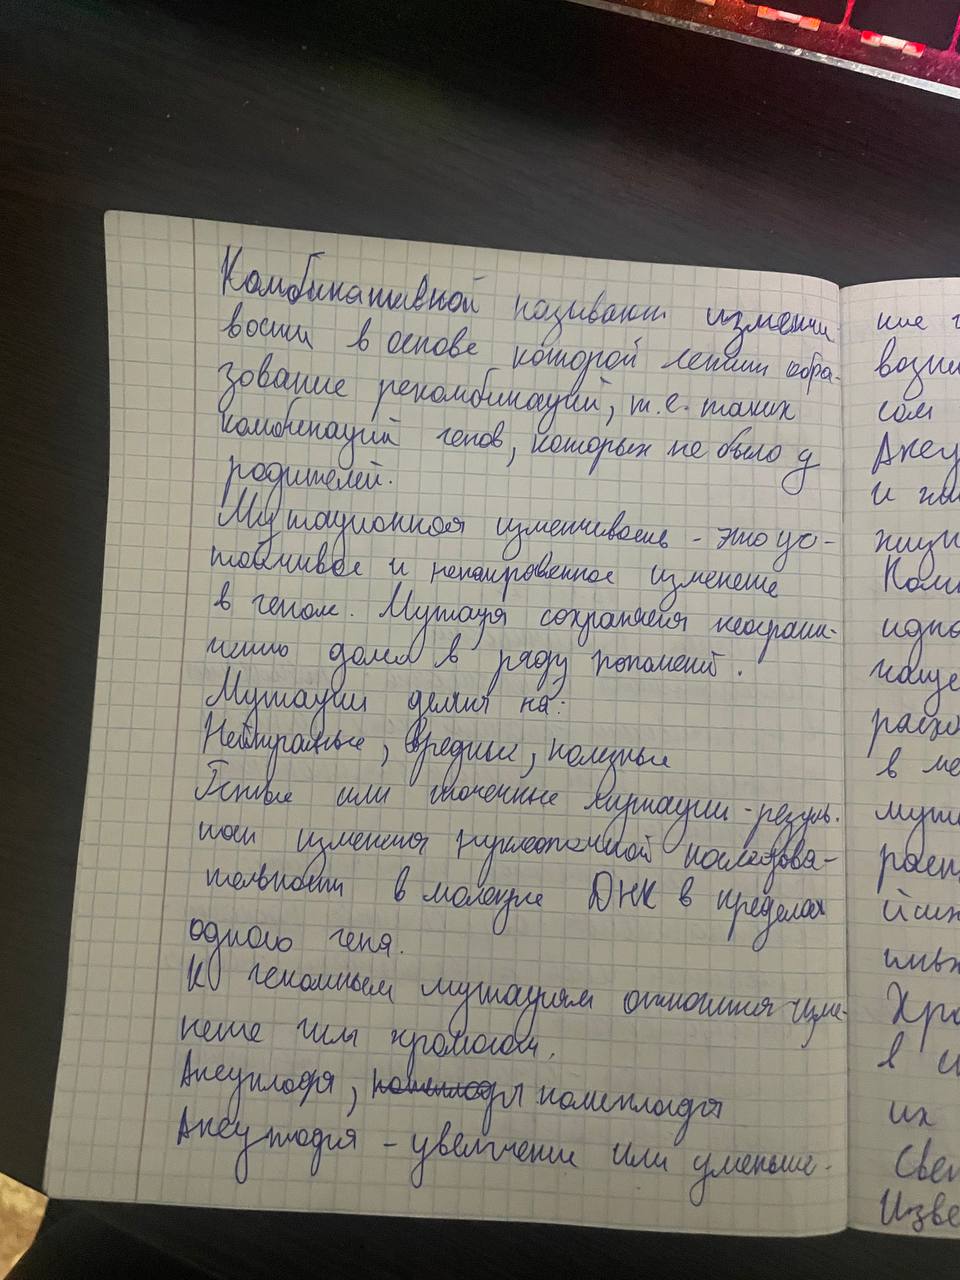 Комбинативной называют изменчи-
вости в основе которой лежит обра-
зование рекомбинаций, т.е. таких
комбинаций генов, которых не было у
родителей.
Мутационная изменчивость - это ус-
тойчивое и ненаправленное изменение
в геном. Мутация сохраняется неограни-
ченно долго в ряду поколений.
Мутации делят на:
Нейтральные, вредные, полезные
Генные или точечные мутации - резуль.
изменения нуклеотидной последова-
тельности в молекуле ДНК в пределах
одного гена.
К геномным мутациям относится изме-
нение числа хромосом.
Анеуплодия, полиплоидия
Анеуплодия - увеличение или уменьше-
кие
возни
сом
Анеу
и
жизн
Ком
идно
наще
расхо
в ме
мута
расп
йсих
Хро
в
их
Свет
Изве